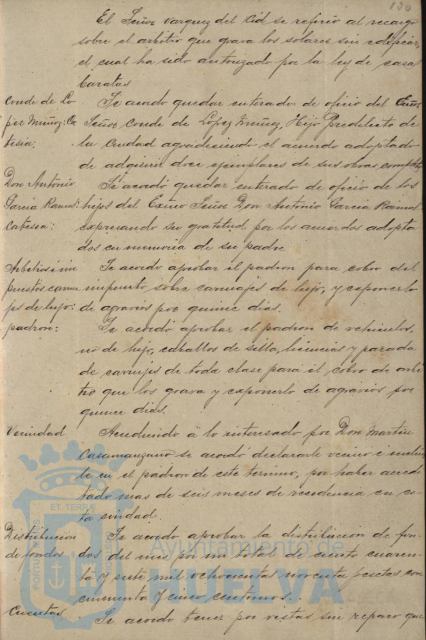 130
El Señor Vazquez del Cid se refirió al recargo
sobre el arbitrio que grava los solares sin edificar,
el cual ha sido autorizado por la ley de casas
baratas
Conde de Lo-
pez Muñoz: Ca
tesia;
Se acordó quedar enterado de oficio del Exmo
Señor Conde de Lopez Muñoz, Hijo Predilecto de
la Ciudad agradeciendo el acuerdo adoptado
de adquirir doce ejemplares de sus obras completas
Don Antonio
Garcia Ramos:
Cortesia:
Se acordó quedar enterado de oficio de los
hijos del Exmo Señor Don Antonio Garcia Ramos
expresando su gratitud por los acuerdos adopta-
dos en memoria de su padre
Arbitrios é im
puestos carrua
jes de lujo:
padron:
Se acordó aprobar el padron para cobro del
impuesto sobre carruajes de lujo, y exponerlo
de agravios por quince dias.
Se acordó aprobar el padron de vehiculos,
no de lujo, caballos de silla, licencias y parada
de carruajes de toda clase para el cobro de arbi-
trio que los grava y exponerlo de agravios por
quince dias.
Vecindad
Accediendo á lo interesado por Don Martin
Casamanzano se acordó declararle vecino é inclu
le en el padron de este termino, por haber acredi
tado mas de seis meses de residencia en es
ta ciudad.
Distribucion
de fondos.
Se acordó aprobar la distribucion de fon-
dos del mes por un total de ciento cuaren
ta y siete mil ochocientas noventa pesetas con
cincuenta y cinco centimos..
Cuentas.
Se acordó tener por vistas sin reparo que
Ayuntamiento de
HUELVA
PORTUS
ET TERRÆ